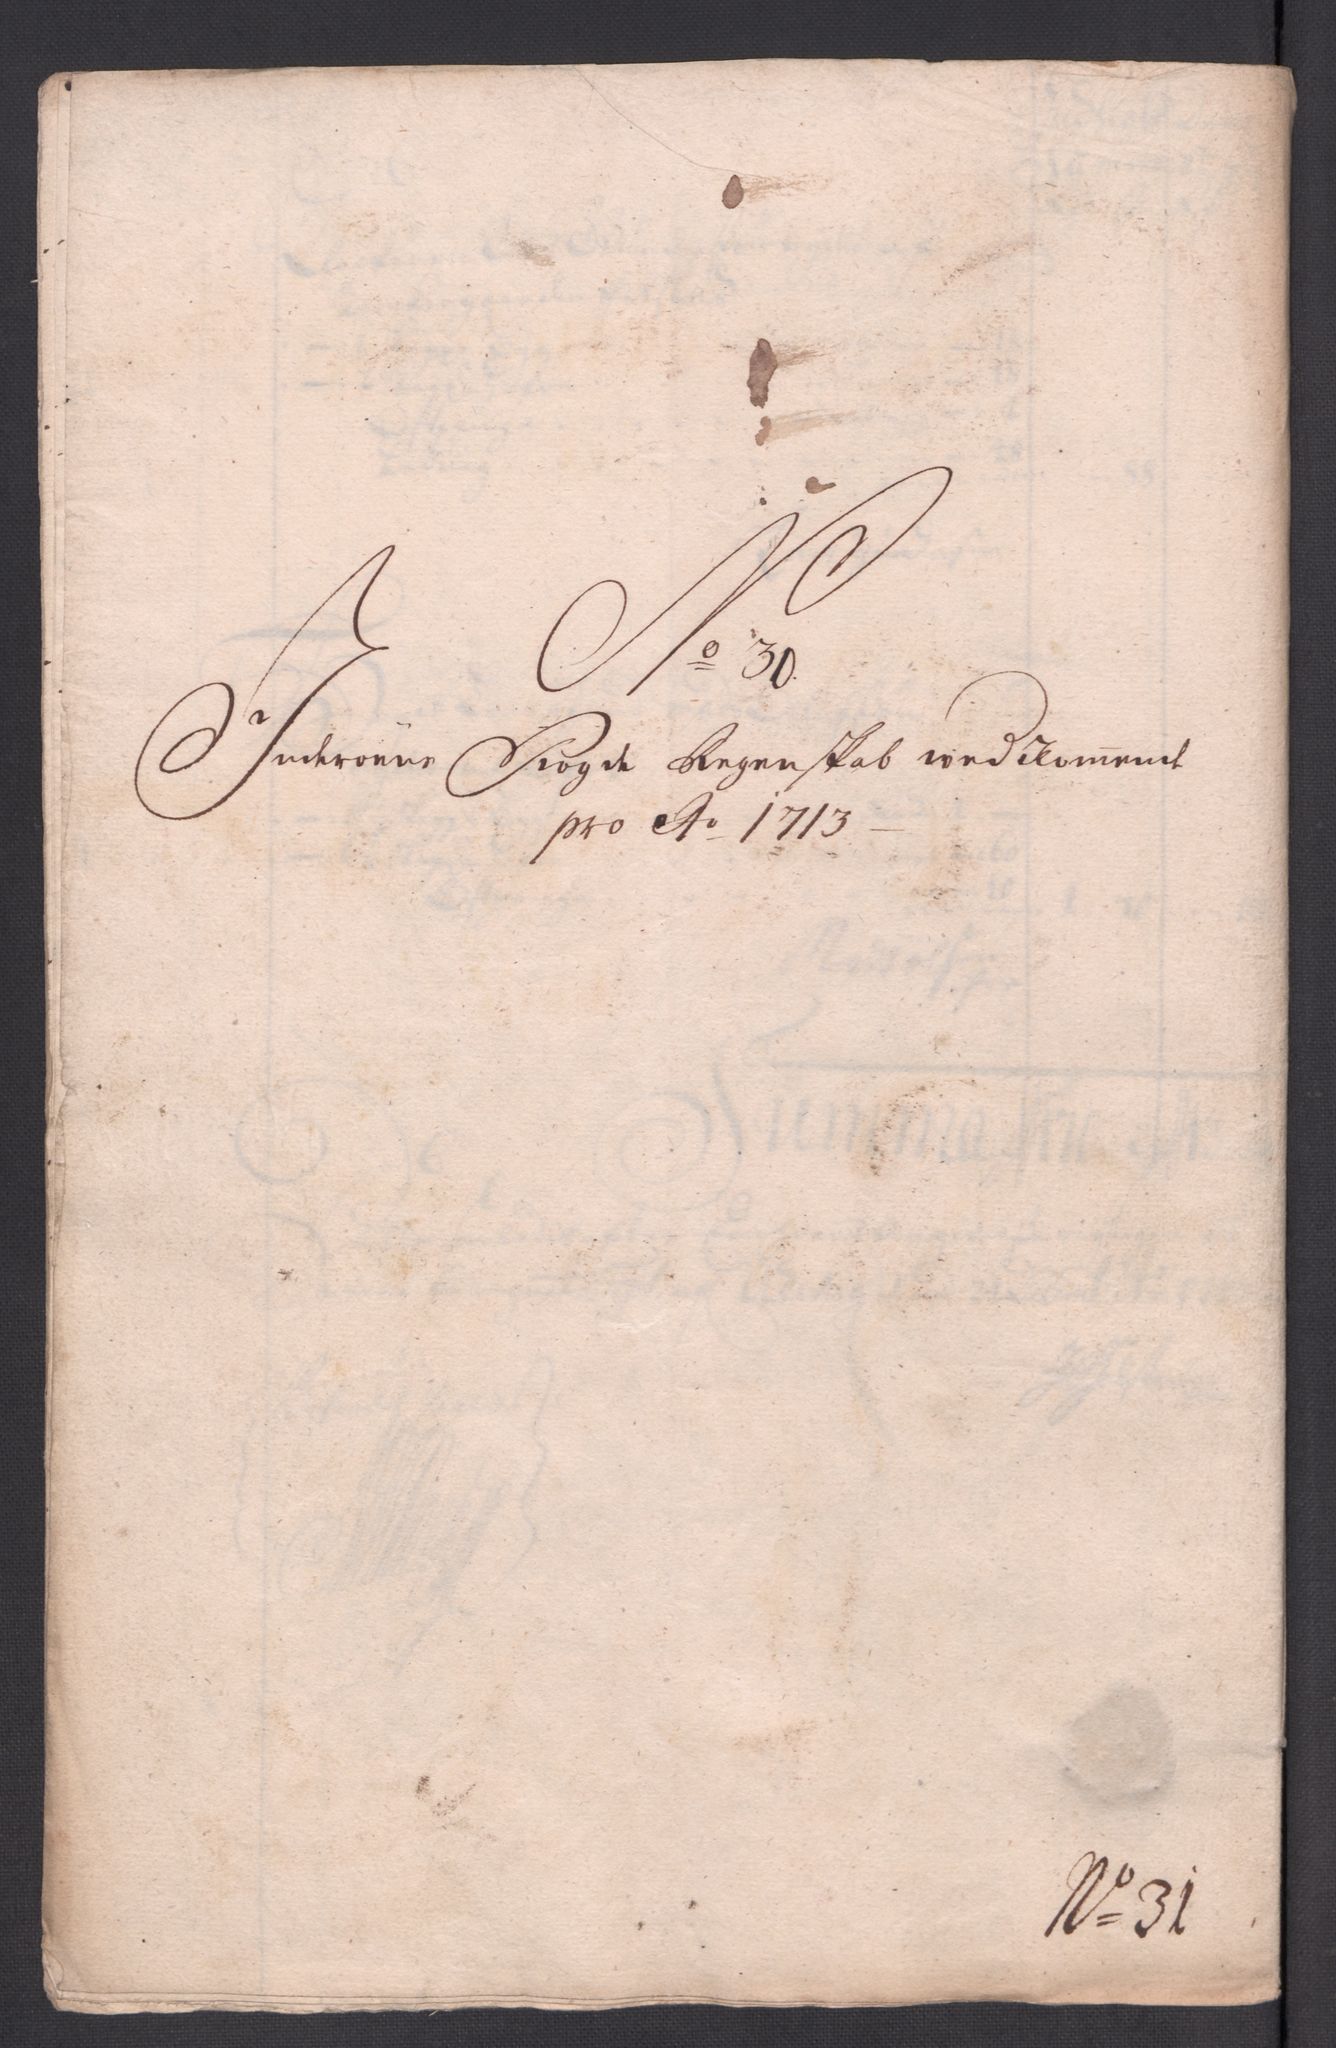 No 30.
Inderøens Fiogde Regenskab wedkom̄ende
pro Ao 1713
No 31